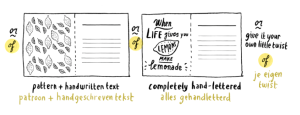 or
of
pattern + handwritten text
patroon + handgeschreven tekst
or
of
When
LIFE gives you
LEMONS
MAKE
lemonade
completely hand-lettered
alles gehandletterd
or
of
give it your
own little twist
je eigen
twist